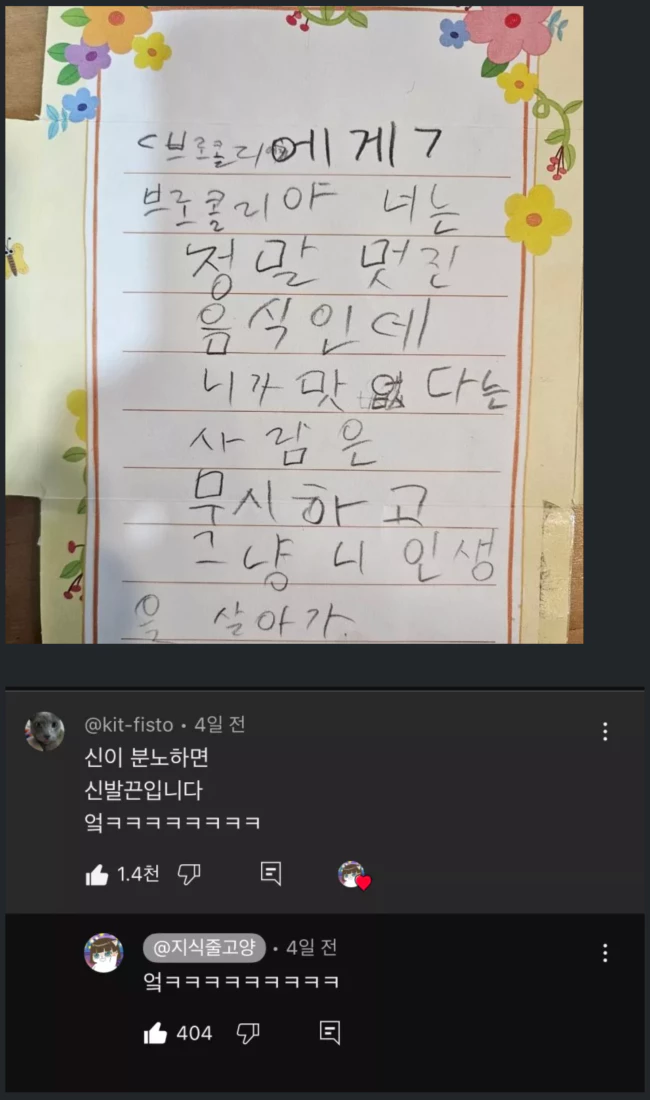 <브로콜리에게7
브로콜리야 너는
정말 멋진
음식인데
니가 맛 없다는
사람은
무시하고
그냥 니 인생
을 살아가.
@kit-fisto • 4일 전
신이 분노하면
신발끈입니다
엌ㅋㅋㅋㅋㅋㅋㅋㅋ
1.4천
@지식줄고양 • 4일 전
엌ㅋㅋㅋㅋㅋㅋㅋㅋㅋ
404